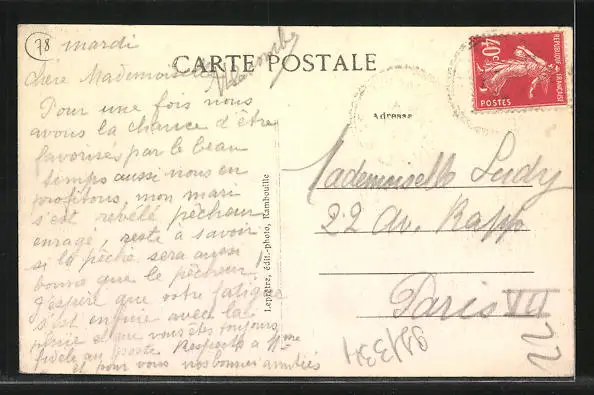 78
mardi
CARTE POSTALE
Chère Mademoiselle
Pour une fois nous
avons la chance d'être
favorisés par le beau
temps aussi nous en
profitons, mon mari
s'est révélé pêcheur
enragé, reste à savoir
si la pêche sera aussi
bonne que le pêcheur!
J'espère que votre fatigue
s'est enfuie avec la
pluie et que vous êtes toujours
fidèle au poste Respects à Mme
et pour vous nos bonnes amitiés
Leprêtre, édit.-photo, Rambouille
REPUBLIQUE FRANÇAISE
40c
POSTES
Adresse
Mademoiselle Ludy
22 Av. Rapp
Paris VII
22